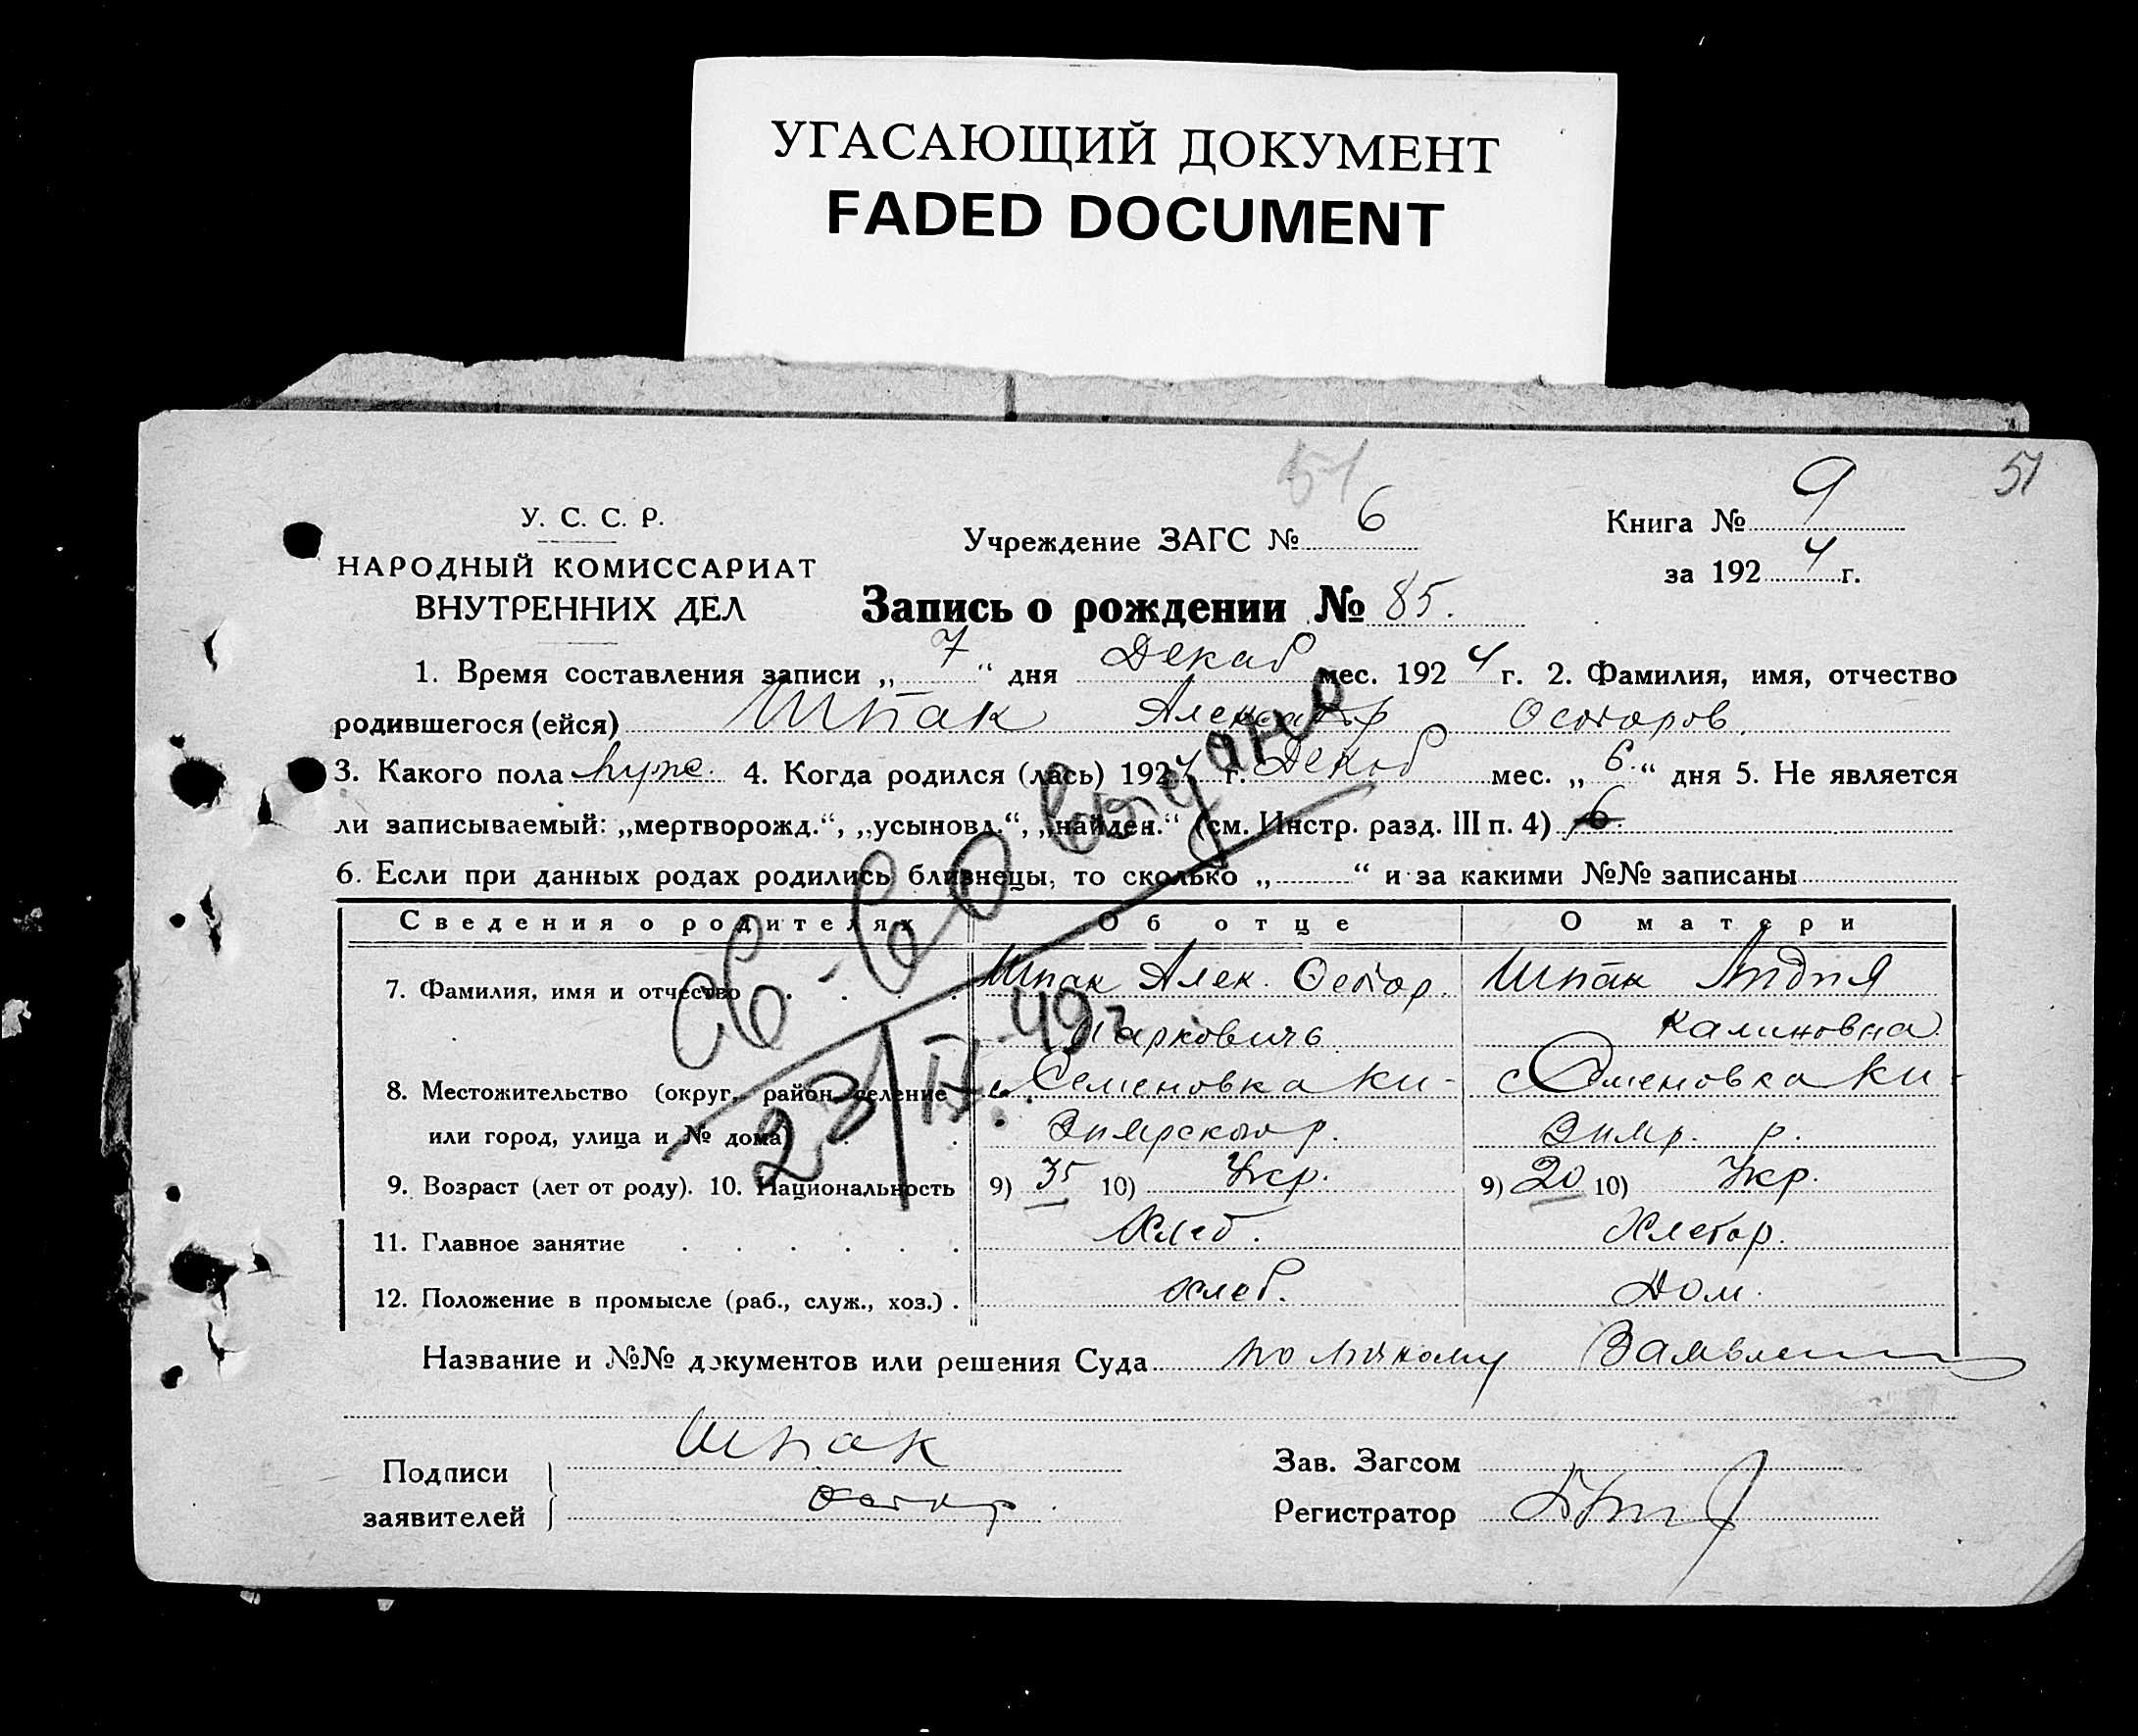 УГАСАЮЩИЙ ДОКУМЕНТ
FADED DOCUMENT
51
51
У. С. С. Р.
НАРОДНЫЙ КОМИССАРИАТ
ВНУТРЕННИХ ДЕЛ
Учреждение ЗАГС № 6
Книга № 9
за 1924 г.
Запись о рождении № 85.
1. Время составления записи „7“ дня Декаб мес. 1924 г. 2. Фамилия, имя, отчество
родившегося (ейся) Шпак Александр
3. Какого пола муже. 4. Когда родился (лась) 1924 г. Декаб мес. „6.“ дня 5. Не является
ли записываемый: „мертворожд.“, „усыновл.“, „найден.“ (см. Инстр. разд. III п. 4) 6.
6. Если при данных родах родились близнецы, то сколько „ “ и за какими №№ записаны
Сведения о родителях Об отце О матери
7. Фамилия, имя и отчество Шпак Алек. Шпак Лидия
Марковичь Калиновна
8. Местожительство (округ, район, селение с Семеновка Ки- с Семеновка Ки-
или город, улица и № дома) Зимр. р.
9. Возраст (лет от роду). 10. Национальность 9) 35 10) Укр. 9) 20 10) Укр.
11. Главное занятие Хлеб.
12. Положение в промысле (раб., служ., хоз.) хлеб. Дом.
Название и №№ документов или решения Суда по
Подписи заявителей Шпак
Зав. Загсом
Регистратор
св-во выдано
23/IV-49г